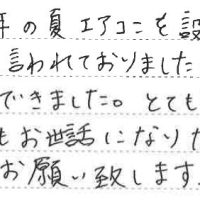 年の夏エアコンを設
言われておりました
できました。とても
もお世話になりた
お願い致します